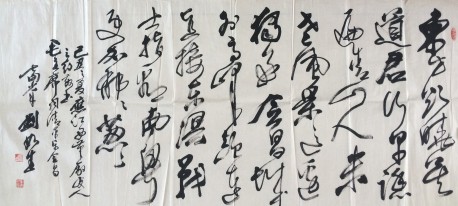 東方欲曉莫
道君行早踏
遍青山人未
老風景這邊
獨好會昌城
外高峰顛連
直接東溟戰
士指看南粵
更加郁々葱々
毛主席词清平乐会昌